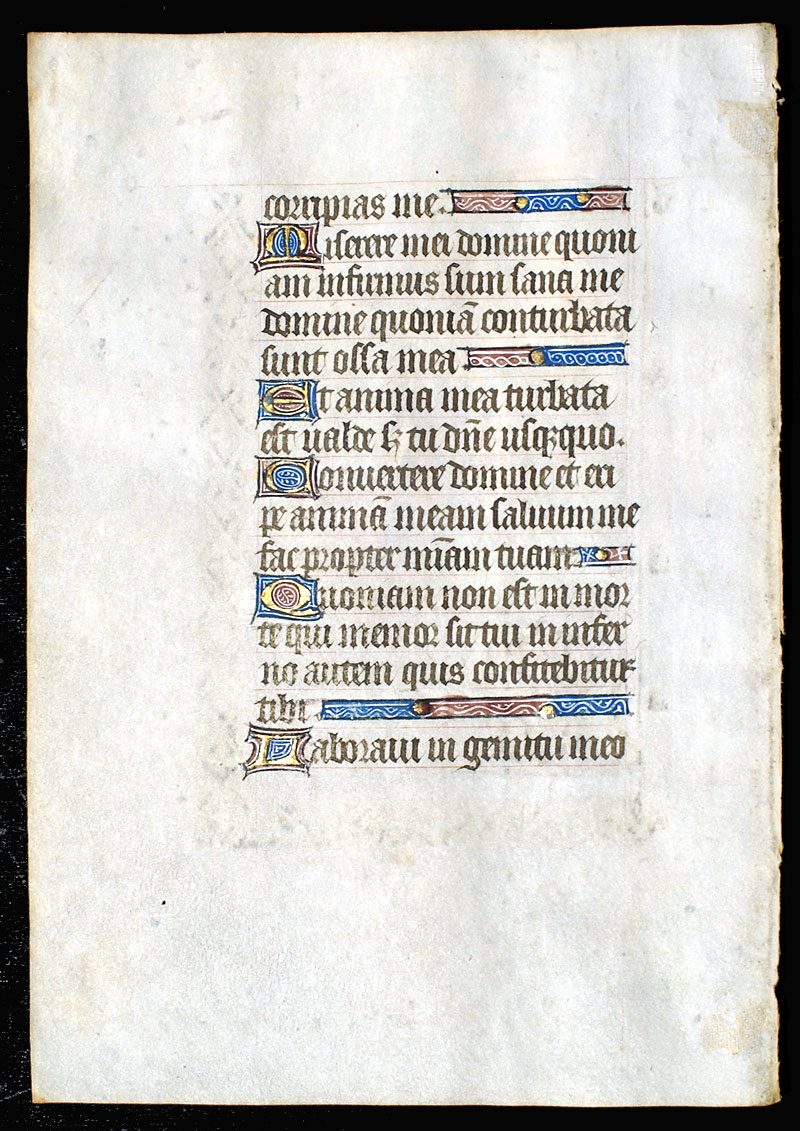 corripias me.
Miserere mei domine quoni
am infirmus sum sana me
domine quoniā conturbata
sunt ossa mea.
Et anima mea turbata
est valde sꝫ tu dn̄e usqꝫquo.
Convertere domine et eri
pe animā meam salvum me
fac propter mīam tuam.
Quoniam non est in mor
te qui memor sit tui in infer
no autem quis confitebitur
tibi.
Laboravi in gemitu meo